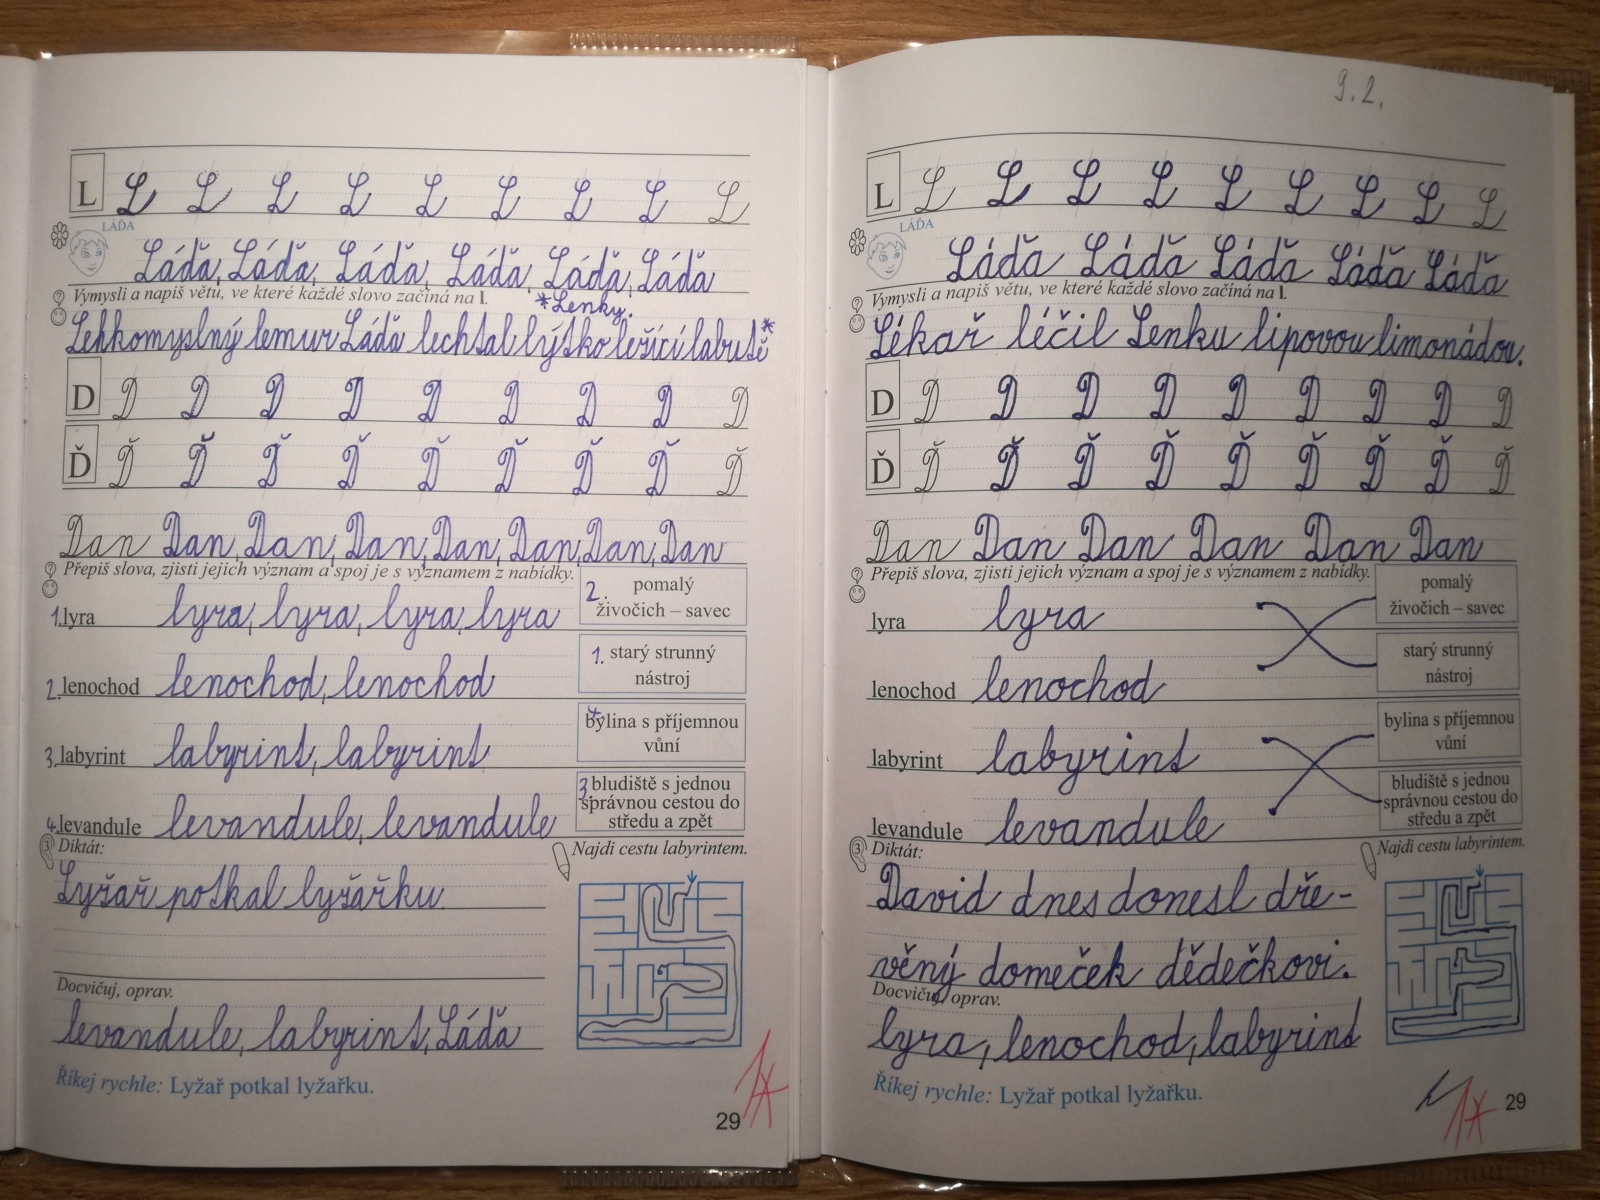 L L L L L L L L L L
LÁĎA
Láďa, Láďa, Láďa, Láďa, Láďa, Láďa
Vymysli a napiš větu, ve které každé slovo začíná na l.
*Lenky.
Lehkomyslný lemur Láďa lechtal lýtko ležící labutě*
D D D D D D D D D D
Ď Ď Ď Ď Ď Ď Ď Ď Ď Ď
Dan Dan, Dan, Dan, Dan, Dan, Dan, Dan
Přepiš slova, zjisti jejich význam a spoj je s významem z nabídky.
1. lyra lyra, lyra, lyra, lyra
2. pomalý
živočich – savec
2. lenochod lenochod, lenochod
1. starý strunný
nástroj
3. labyrint labyrint, labyrint
4. bylina s příjemnou
vůní
4. levandule levandule, levandule
3. bludiště s jednou
správnou cestou do
středu a zpět
3 Diktát:
Najdi cestu labyrintem.
Lyžař potkal lyžařku.
Docvičuj, oprav.
levandule, labyrint, Láďa
Říkej rychle: Lyžař potkal lyžařku.
1*
29
9.2.
L L L L L L L L L L
LÁĎA
Láďa Láďa Láďa Láďa Láďa
Vymysli a napiš větu, ve které každé slovo začíná na l.
Lékař léčil Lenku lipovou limonádou.
D D D D D D D D D D
Ď Ď Ď Ď Ď Ď Ď Ď Ď Ď
Dan Dan Dan Dan Dan Dan
Přepiš slova, zjisti jejich význam a spoj je s významem z nabídky.
lyra lyra
pomalý
živočich – savec
lenochod lenochod
starý strunný
nástroj
labyrint labyrint
bylina s příjemnou
vůní
levandule levandule
bludiště s jednou
správnou cestou do
středu a zpět
3 Diktát:
Najdi cestu labyrintem.
David dnes donesl dře-
věný domeček dědečkovi.
Docvičuj, oprav.
lyra, lenochod, labyrint
Říkej rychle: Lyžař potkal lyžařku.
1*
29